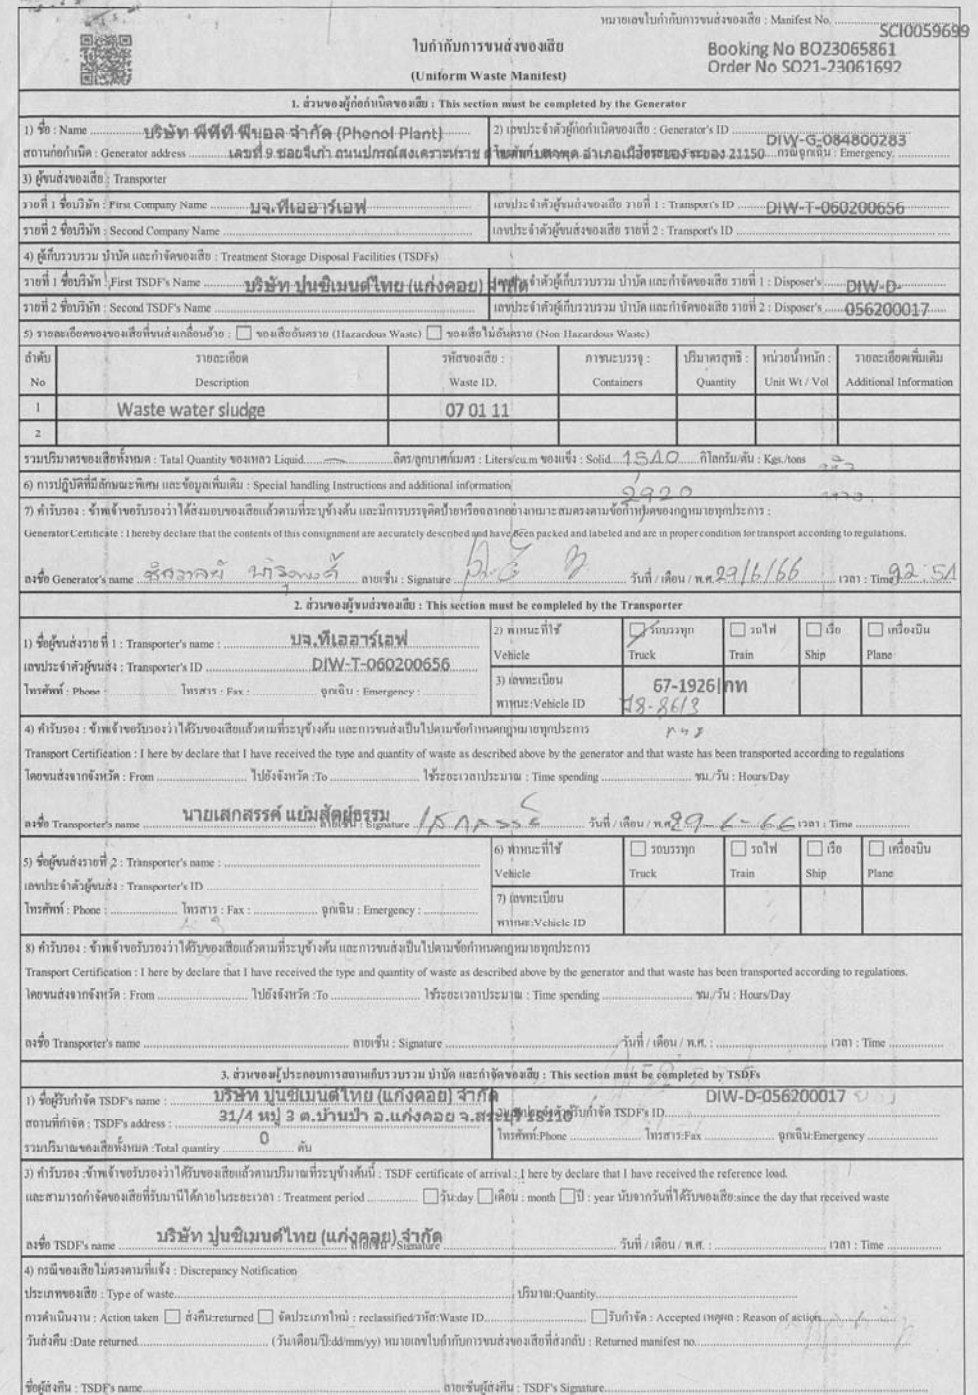 หมายเลขใบกำกับการขนส่งของเสีย : Manifest No. SCI0059699
ใบกำกับการขนส่งของเสีย
(Uniform Waste Manifest)
Booking No BO23065861
Order No SO21-23061692
1. ส่วนของผู้ก่อกำเนิดของเสีย : This section must be completed by the Generator
1) ชื่อ : Name บริษัท พีทีที ฟีนอล จำกัด (Phenol Plant) 2) เลขประจำตัวผู้ก่อกำเนิดของเสีย : Generator's ID DIW-G-084800283
สถานก่อกำเนิด : Generator address เลขที่ 9 ซอยจีเก้า ถนนปกรณ์สงเคราะห์ราช อำเภอเมืองระยอง ระยอง 21150 กรณีฉุกเฉิน : Emergency.
3) ผู้ขนส่งของเสีย : Transporter
รายที่ 1 ชื่อบริษัท : First Company Name บจ.ทีเออาร์เอฟ เลขประจำตัวผู้ขนส่งของเสีย รายที่ 1 : Transport's ID DIW-T-060200656
รายที่ 2 ชื่อบริษัท : Second Company Name เลขประจำตัวผู้ขนส่งของเสีย รายที่ 2 : Transport's ID
4) ผู้เก็บรวบรวม บำบัด และกำจัดของเสีย : Treatment Storage Disposal Facilities (TSDFs)
รายที่ 1 ชื่อบริษัท : First TSDF's Name บริษัท ปูนซิเมนต์ไทย (แก่งคอย) จำกัด เลขประจำตัวผู้เก็บรวบรวม บำบัด และกำจัดของเสีย รายที่ 1 : Disposer's DIW-D-
รายที่ 2 ชื่อบริษัท : Second TSDF's Name เลขประจำตัวผู้เก็บรวบรวม บำบัด และกำจัดของเสีย รายที่ 2 : Disposer's 056200017
5) รายละเอียดของของเสียที่ขนส่งเคลื่อนย้าย : ของเสียอันตราย (Hazardous Waste) ของเสียไม่อันตราย (Non Hazardous Waste)
ลำดับ รายละเอียด รหัสของเสีย : ภาชนะบรรจุ : ปริมาตรสุทธิ : หน่วยน้ำหนัก : รายละเอียดเพิ่มเติม
No Description Waste ID. Containers Quantity Unit Wt / Vol Additional Information
1 Waste water sludge 07 01 11
2
รวมปริมาตรของเสียทั้งหมด : Tatal Quantity ของเหลว Liquid ลิตร/ลูกบาศก์เมตร : Liters/cu.m ของแข็ง : Solid กิโลกรัม/ตัน : Kgs./tons
6) การปฏิบัติที่มีลักษณะพิเศษ และข้อมูลเพิ่มเติม : Special handling Instructions and additional information 2920
7) คำรับรอง : ข้าพเจ้าขอรับรองว่าได้ส่งมอบของเสียแล้วตามที่ระบุข้างต้น และมีการบรรจุติดป้ายหรือฉลากอย่างเหมาะสมตรงตามข้อกำหนดของกฎหมายทุกประการ :
Generator Certificate : I hereby declare that the contents of this consignment are accurately described and have been packed and labeled and are in proper condition for transport according to regulations.
ลงชื่อ Generator's name ลายเซ็น : Signature วันที่ / เดือน / พ.ศ. 29/6/66 เวลา : Time
2. ส่วนของผู้ขนส่งของเสีย : This section must be compleled by the Transporter
1) ชื่อผู้ขนส่งราย ที่ 1 : Transporter's name : บจ.ทีเออาร์เอฟ 2) พาหนะที่ใช้ รถบรรทุก รถไฟ เรือ เครื่องบิน
เลขประจำตัวผู้ขนส่ง : Transporter's ID DIW-T-060200656 Vehicle Truck Train Ship Plane
โทรศัพท์ : Phone โทรสาร : Fax : ฉุกเฉิน : Emergency : 3) เลขทะเบียน 67-1926 กท
พาหนะ:Vehicle ID 78-8613
4) คำรับรอง : ข้าพเจ้าขอรับรองว่าได้รับของเสียแล้วตามที่ระบุข้างต้น และการขนส่งเป็นไปตามข้อกำหนดกฎหมายทุกประการ
Transport Certification : I here by declare that I have received the type and quantity of waste as described above by the generator and that waste has been transported according to regulations
โดยขนส่งจากจังหวัด : From ไปยังจังหวัด :To ใช้ระยะเวลาประมาณ : Time spending ชม./วัน : Hours/Day
ลงชื่อ Transporter's name นายเสกสรรค์ แย้มสัตย์ธรรม ลายเซ็น : Signature วันที่ / เดือน / พ.ศ. 29-6-66 เวลา : Time
5) ชื่อผู้ขนส่งรายที่ 2 : Transporter's name : 6) พาหนะที่ใช้ รถบรรทุก รถไฟ เรือ เครื่องบิน
เลขประจำตัวผู้ขนส่ง : Transporter's ID Vehicle Truck Train Ship Plane
โทรศัพท์ : Phone : โทรสาร : Fax : ฉุกเฉิน : Emergency : 7) เลขทะเบียน
พาหนะ:Vehicle ID
8) คำรับรอง : ข้าพเจ้าขอรับรองว่าได้รับของเสียแล้วตามที่ระบุข้างต้น และการขนส่งเป็นไปตามข้อกำหนดกฎหมายทุกประการ
Transport Certification : I here by declare that I have received the type and quantity of waste as described above by the generator and that waste has been transported according to regulations.
โดยขนส่งจากจังหวัด : From ไปยังจังหวัด :To ใช้ระยะเวลาประมาณ : Time spending ชม./วัน : Hours/Day
ลงชื่อ Transporter's name ลายเซ็น : Signature วันที่ / เดือน / พ.ศ. : เวลา : Time
3. ส่วนของผู้ประกอบการสถานเก็บรวบรวม บำบัด และกำจัดของเสีย : This section must be completed by TSDFs
1) ชื่อผู้รับกำจัด TSDF's name : บริษัท ปูนซิเมนต์ไทย (แก่งคอย) จำกัด DIW-D-056200017
สถานที่กำจัด : TSDF's address : 31/4 หมู่ 3 ต.บ้านป่า อ.แก่งคอย จ.สระบุรี 18110 2)เลขประจำตัวผู้รับกำจัด TSDF's ID
รวมปริมาณของเสียทั้งหมด :Total quantiry 0 ตัน โทรศัพท์:Phone โทรสาร:Fax ฉุกเฉิน:Emergency
3) คำรับรอง :ข้าพเจ้าขอรับรองว่าได้รับของเสียแล้วตามปริมาณที่ระบุข้างต้นนี้ : TSDF certificate of arrival : I here by declare that I have received the reference load.
และสามารถกำจัดของเสียที่รับมานี้ได้ภายในระยะเวลา : Treatment period วัน:day เดือน : month ปี : year นับจากวันที่ได้รับของเสีย:since the day that received waste
ลงชื่อ TSDF's name บริษัท ปูนซิเมนต์ไทย (แก่งคอย) จำกัด ลายเซ็น : Signature วันที่ / เดือน / พ.ศ. : เวลา : Time
4) กรณีของเสียไม่ตรงตามที่แจ้ง : Discrepancy Notification
ประเภทของเสีย : Type of waste ปริมาณ:Quantity
การดำเนินงาน : Action taken ส่งคืน:returned จัดประเภทใหม่ : reclassified/รหัส:Waste ID รับกำจัด : Accepted เหตุผล : Reason of action
วันส่งคืน :Date returned (วัน/เดือน/ปี:dd/mm/yy) หมายเลขใบกำกับการขนส่งของเสียที่ส่งกลับ : Returned manifest no
ชื่อผู้ส่งคืน : TSDF's name ลายเซ็นผู้ส่งคืน : TSDF's Signature